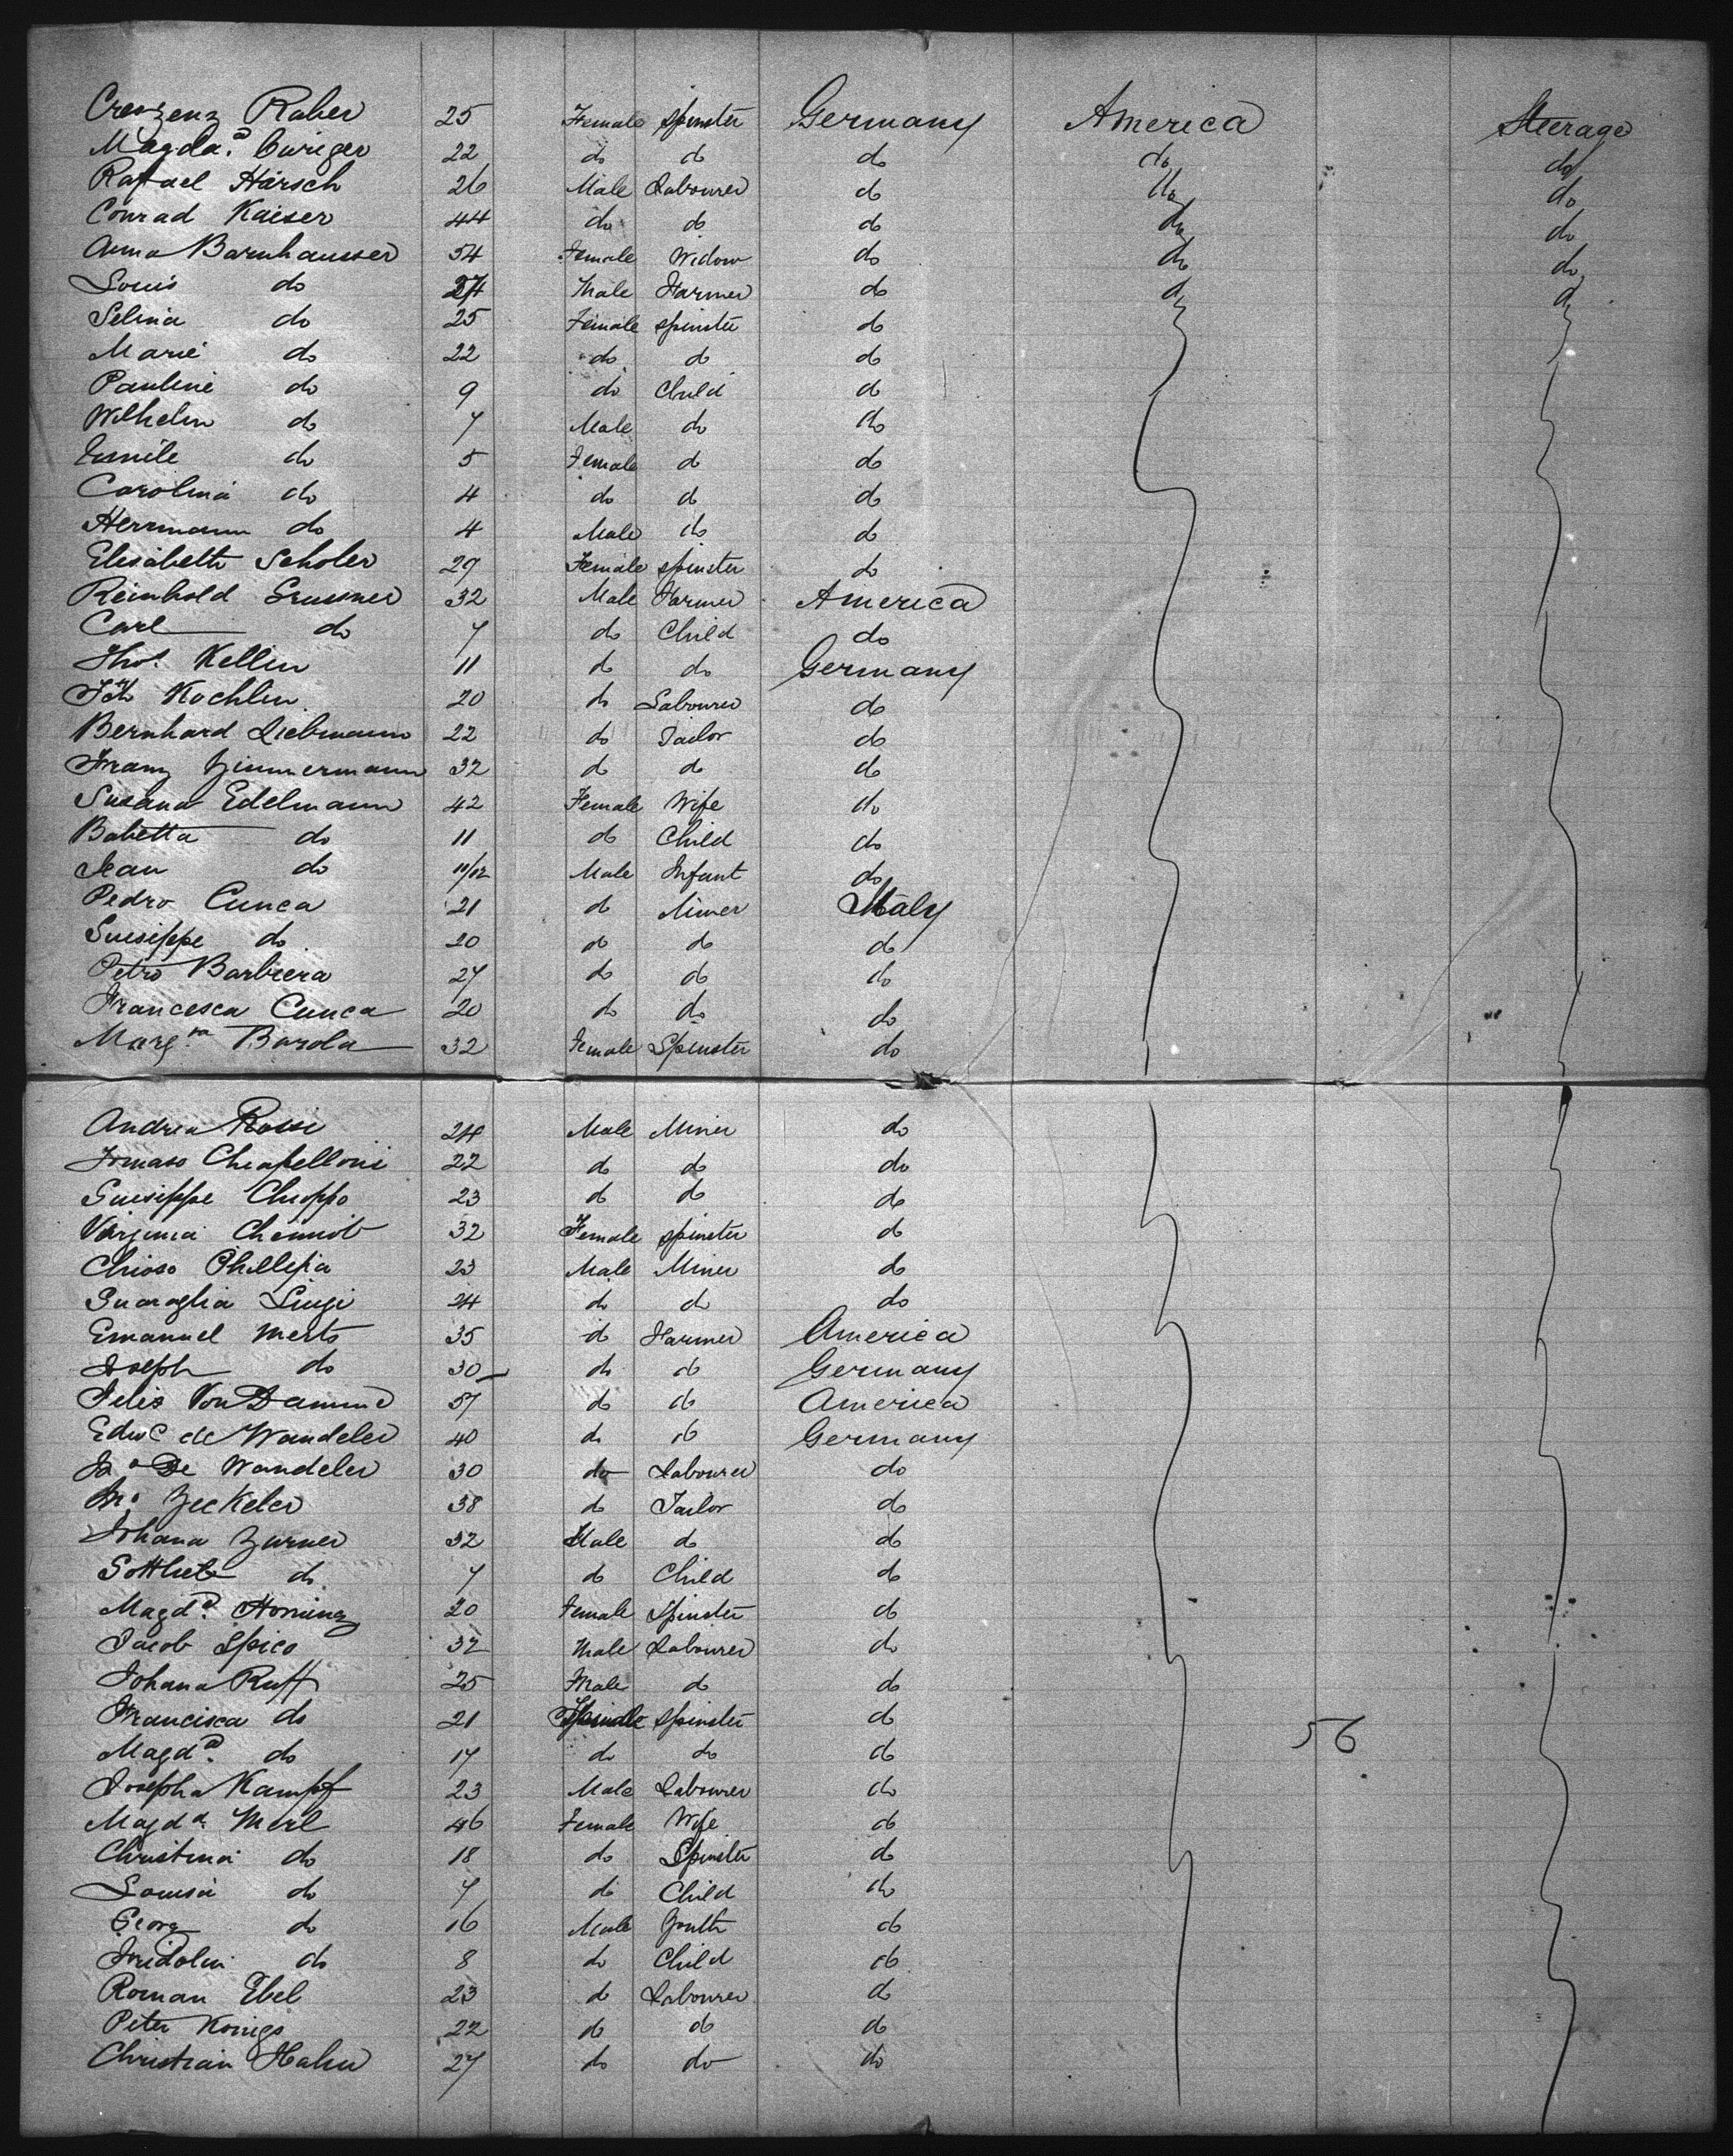 Creszenz Raber 25 Female Spinster Germany America Steerage
Magda. Curiger 22 do do do do do
Rafael Harsch 26 Male Labourer do do do
Conrad Kaiser 44 do do do do do
Anna Barnhausser 54 Female Widow do do do
Louis do 27 Male Farmer do do do
Selina do 25 Female spinster do
Marie do 22 do do do
Pauline do 9 do Child do
Wilhelm do 7 Male do do
Emile do 5 Female do do
Carolina do 4 do do do
Herrmann do 4 Male do do
Elisabeth Scholer 29 Female spinster do
Reinhold 32 Male Farmer America
Carl do 7 do Child do
Thos. Keller 11 do do Germany
Joh Kochlin 20 do Labourer do
Bernhard Liebmann 22 do Tailor do
Franz Zimmermann 32 do do do
Susana Edelmann 42 Female Wife do
Babetta do 11 do Child do
Jean do 11/12 Male Infant do
Pedro Cunca 21 do Miner Italy
Guiseppe do 20 do do do
Petro Barbiera 27 do do do
Francesca Cunca 20 do do do
Margta Barola 32 Female Spinster do
Andrea Rossi 24 Male Miner do
Tomaso Chiapelloni 22 do do do
Guiseppe Chioppo 23 do do do
Virginia 32 Female spinster do
Chioso Phillipa 23 Male Miner do
Guaraglia Luigi 24 do do do
Emanuel Merts 35 do Farmer America
Joseph do 30 do do Germany
Felix Von Damme 57 do do America
Edwd de Wandeler 40 do do Germany
De Wandeler 30 do Labourer do
Zeckeler 38 do Tailor do
Johana Zurner 32 Male do do
Gottlieb do 7 do Child do
Magda. 20 Female Spinster do
Jacob Spico 32 Male Labourer do
Johana Ruff 25 Male do do
Francisca do 21 Female spinster do 56
Magda. do 17 do do do
Josepha Kampf 23 Male Labourer do
Magda. Merl 46 Female Wife do
Christina do 18 do Spinster do
Louisa do 7 do Child do
Georg do 16 Male Youth do
Fridolin do 8 do Child do
Roman Ebel 23 do Labourer do
Peter Konigs 22 do do do
Christian Hahn 27 do do do